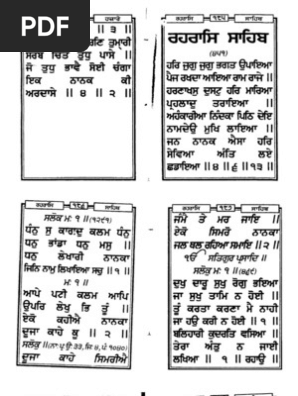 PDF
ਹਜ਼ਾਰੇ
॥ ੩ ॥
ਤੁਮਾ੍ਰੀ
ਸਰਬ ਚਿੰਤ ਤੁਧੁ ਪਾਸੇ ॥
ਜੋ ਤੁਧੁ ਭਾਵੈ ਸੋਈ ਚੰਗਾ
ਇਕ ਨਾਨਕ ਕੀ
ਅਰਦਾਸੇ ॥ ੪ ॥ ੨ ॥
ਰਹਰਾਸਿ ਸਾਹਿਬ
ਰਹਰਾਸਿ ਸਾਹਿਬ
(੪੫੧)
ਹਰਿ ਜੁਗੁ ਜੁਗੁ ਭਗਤ ਉਪਾਇਆ
ਪੈਜ ਰਖਦਾ ਆਇਆ ਰਾਮ ਰਾਜੇ ॥
ਹਰਣਾਖਸੁ ਦੁਸਟੁ ਹਰਿ ਮਾਰਿਆ
ਪ੍ਰਹਲਾਦੁ ਤਰਾਇਆ ॥
ਅਹੰਕਾਰੀਆ ਨਿੰਦਕਾ ਪਿਠਿ ਦੇਇ
ਨਾਮਦੇਉ ਮੁਖਿ ਲਾਇਆ ॥
ਜਨ ਨਾਨਕ ਐਸਾ ਹਰਿ
ਸੇਵਿਆ ਅੰਤਿ ਲਏ
ਛਡਾਇਆ ॥ ੪ ॥ ੬ ॥ ੧੩ ॥
ਰਹਰਾਸਿ ਸਾਹਿਬ
ਸਲੋਕੁ ਮਃ ੧ ॥ (੧੨੯੧)
ਧੰਨੁ ਸੁ ਕਾਗਦੁ ਕਲਮ ਧੰਨੁ
ਧਨੁ ਭਾਂਡਾ ਧਨੁ ਮਸੁ ॥
ਧਨੁ ਲੇਖਾਰੀ ਨਾਨਕਾ
ਜਿਨਿ ਨਾਮੁ ਲਿਖਾਇਆ ਸਚੁ ॥ ੧ ॥
ਮਃ ੧ ॥
ਆਪੇ ਪਟੀ ਕਲਮ ਆਪਿ
ਉਪਰਿ ਲੇਖੁ ਭਿ ਤੂੰ ॥
ਏਕੋ ਕਹੀਐ ਨਾਨਕਾ
ਦੂਜਾ ਕਾਹੇ ਕੂ ॥ ੨ ॥
ਸਲੋਕੁ ॥
ਦੂਜਾ ਕਾਹੇ ਸਿਮਰੀਐ
ਰਹਰਾਸਿ ਸਾਹਿਬ
ਜੰਮੈ ਤੇ ਮਰ ਜਾਇ ॥
ਏਕੋ ਸਿਮਰੋ ਨਾਨਕਾ
ਜਲ ਥਲ ਰਹਿਆ ਸਮਾਇ ॥ ੨ ॥
ੴ ਸਤਿਗੁਰ ਪ੍ਰਸਾਦਿ ॥
ਸਲੋਕੁ ਮਃ ੧ ॥ (੪੬੯)
ਦੁਖੁ ਦਾਰੂ ਸੁਖੁ ਰੋਗੁ ਭਇਆ
ਜਾ ਸੁਖੁ ਤਾਮਿ ਨ ਹੋਈ ॥
ਤੂੰ ਕਰਤਾ ਕਰਣਾ ਮੈ ਨਾਹੀ
ਜਾ ਹਉ ਕਰੀ ਨ ਹੋਈ ॥ ੧ ॥
ਬਲਿਹਾਰੀ ਕੁਦਰਤਿ ਵਸਿਆ ॥
ਤੇਰਾ ਅੰਤੁ ਨ ਜਾਈ
ਲਖਿਆ ॥ ੧ ॥ ਰਹਾਉ ॥